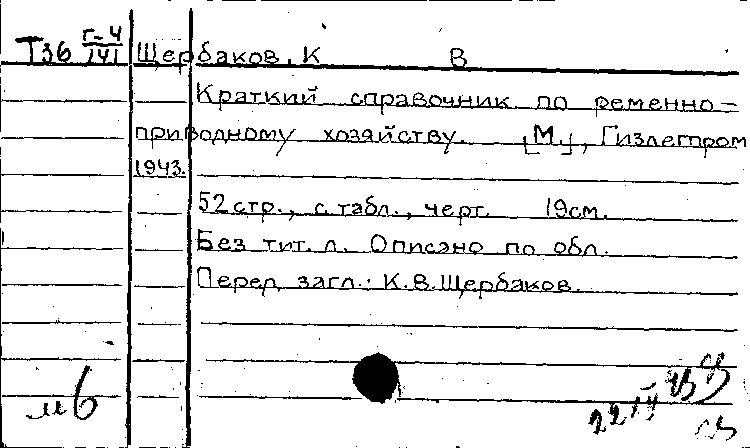 Т36 Г-4/141 Щербаков, К В
Краткий справочник по ременно-
приводному хозяйству. [М.], Гизлегпром
1943.
52 стр., с табл., черт. 19см.
Без тит. л. Описано по обл.
Перед загл.: К.В.Щербаков.
22 IV